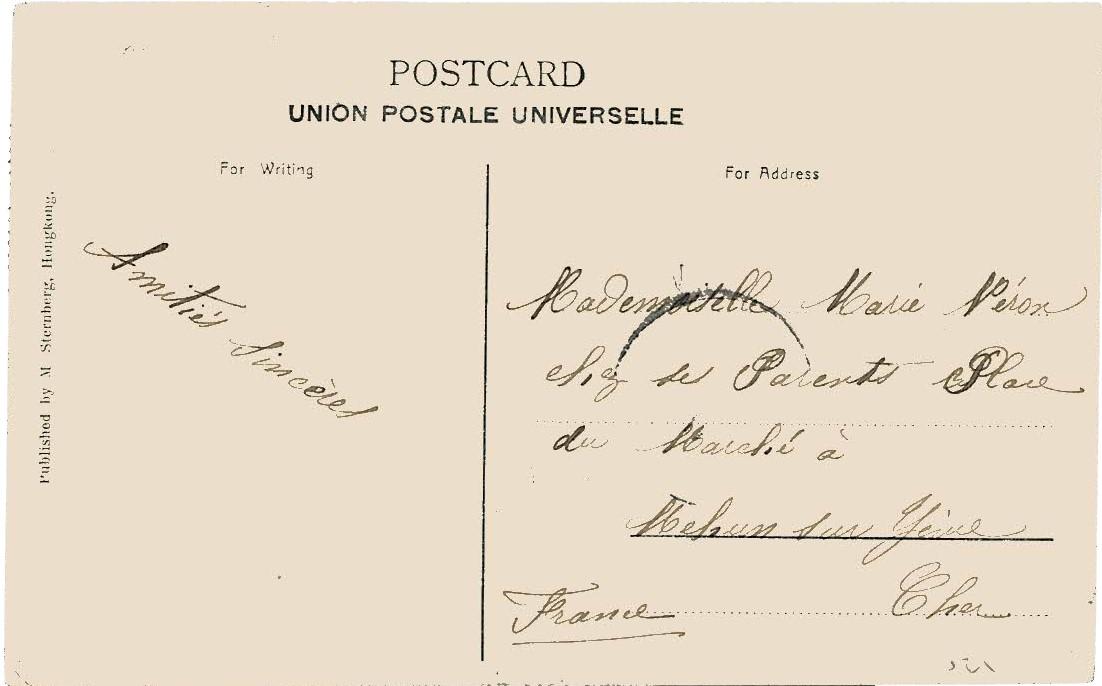 POSTCARD
UNION POSTALE UNIVERSELLE
For Writing
For Address
Published by M Sternberg, Hongkong.
Amitiés Sincères
Mademoiselle Marie Véron
chez ses Parents Place
du Marché à
Mehun sur Yèvre
France Cher